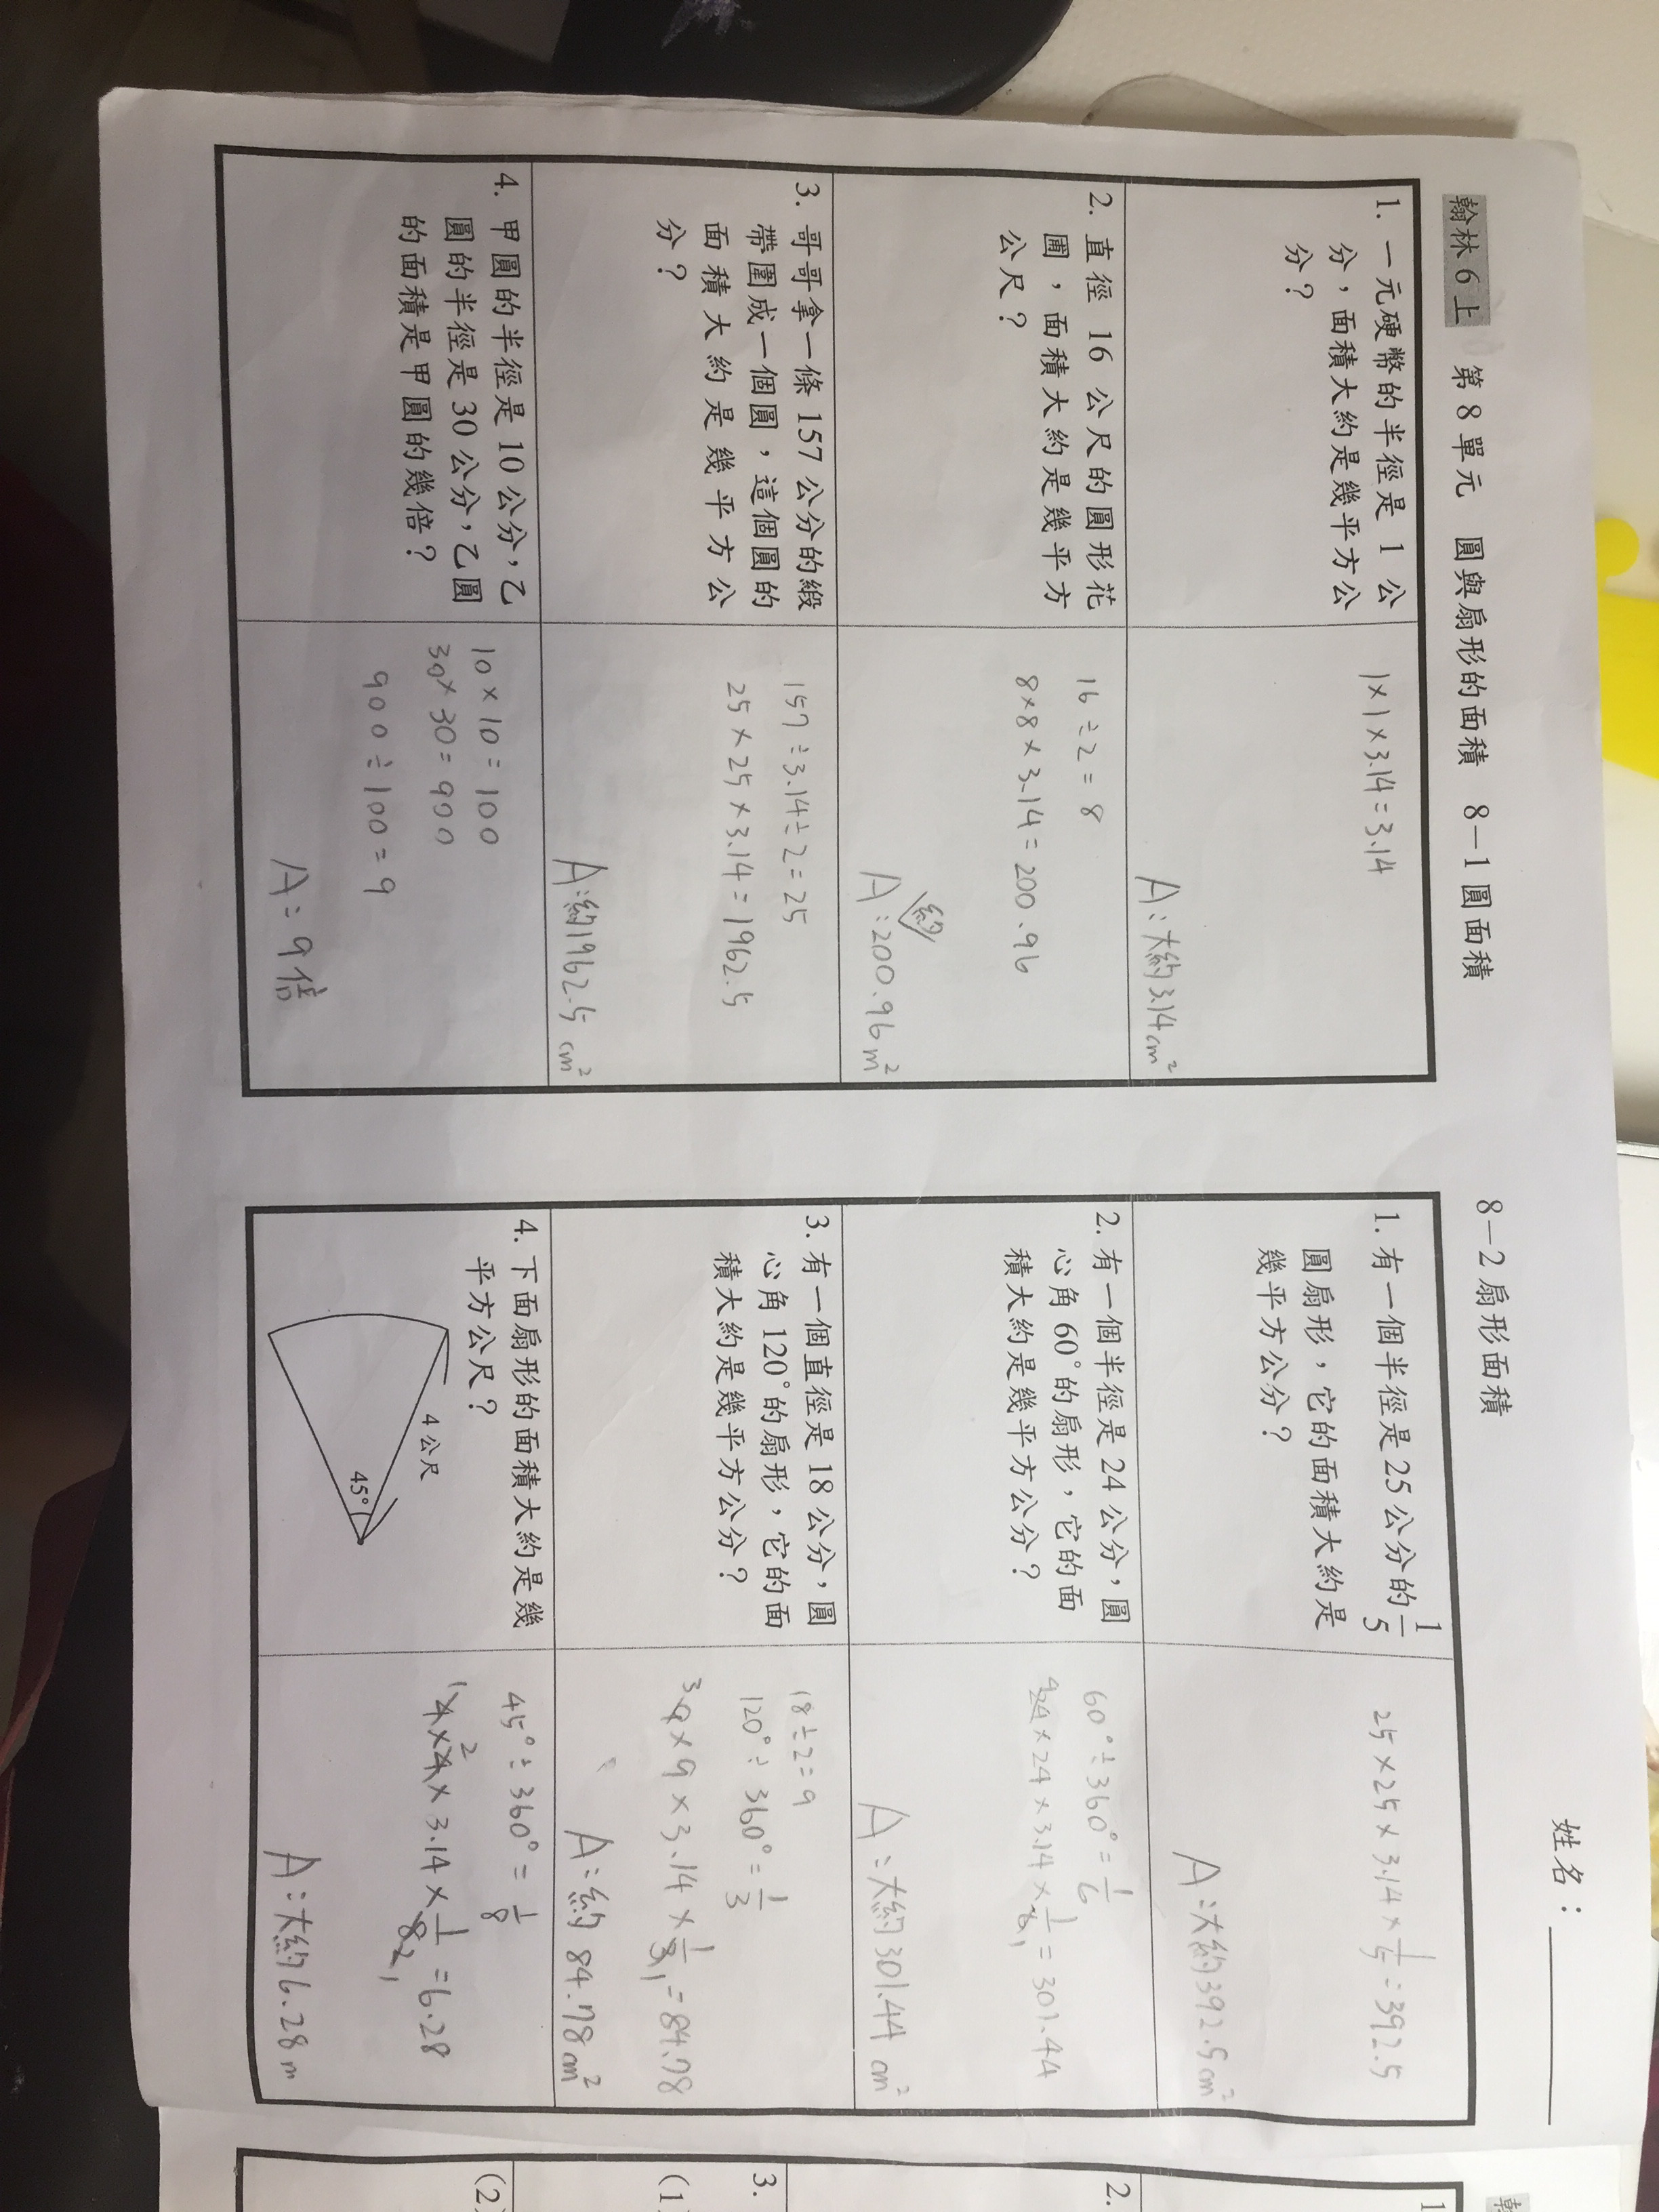 翰林6上 第8單元 圓與扇形的面積 8－1圓面積
1. 一元硬幣的半徑是 1 公
分，面積大約是幾平方公
分？
1×1×3.14=3.14
A:大約3.14cm²
2. 直徑 16 公尺的圓形花
圃，面積大約是幾平方
公尺？
16÷2=8
8×8×3.14=200.96
約
A:200.96m²
3. 哥哥拿一條 157 公分的緞
帶圍成一個圓，這個圓的
面積大約是幾平方公
分？
157÷3.14÷2=25
25×25×3.14=1962.5
A:約1962.5cm²
4. 甲圓的半徑是 10 公分，乙
圓的半徑是 30 公分，乙圓
的面積是甲圓的幾倍？
10×10=100
30×30=900
900÷100=9
A:9倍
姓名：
8－2扇形面積
1. 有一個半徑是 25 公分的 1/5
圓扇形，它的面積大約是
幾平方公分？
25×25×3.14×1/5=392.5
A:大約392.5cm²
2. 有一個半徑是 24 公分，圓
心角 60°的扇形，它的面
積大約是幾平方公分？
60°÷360°=1/6
4
24×24×3.14×1/6=301.44
1
A:大約301.44cm²
3. 有一個直徑是 18 公分，圓
心角 120°的扇形，它的面
積大約是幾平方公分？
18÷2=9
120°÷360°=1/3
3
9×9×3.14×1/3=84.78
1
A:約84.78cm²
4. 下面扇形的面積大約是幾
平方公尺？
4 公尺
45°
45°÷360°=1/8
1 2
4×4×3.14×1/8=6.28
2 1
A:大約6.28m
1
2.
3.
(1
(2